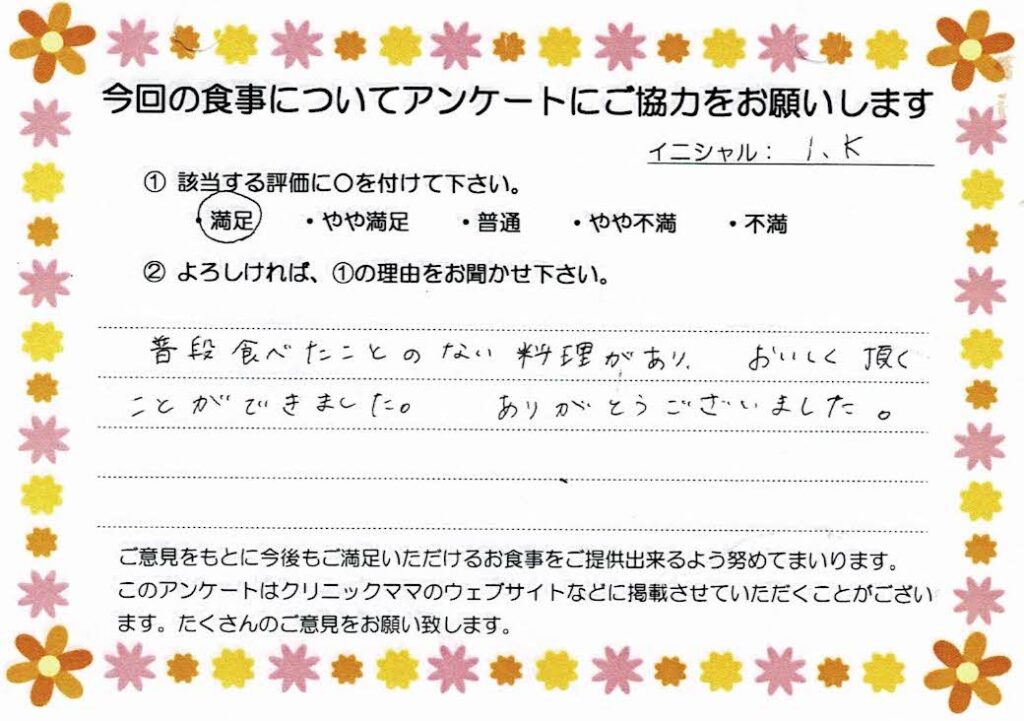 今回の食事についてアンケートにご協力をお願いします
イニシャル： I、K
① 該当する評価に〇を付けて下さい。
・満足 ・やや満足 ・普通 ・やや不満 ・不満
② よろしければ、①の理由をお聞かせ下さい。
普段食べたことのない料理があり、おいしく頂く
ことができました。 ありがとうございました。
ご意見をもとに今後もご満足いただけるお食事をご提供出来るよう努めてまいります。
このアンケートはクリニックママのウェブサイトなどに掲載させていただくことがござい
ます。たくさんのご意見をお願い致します。